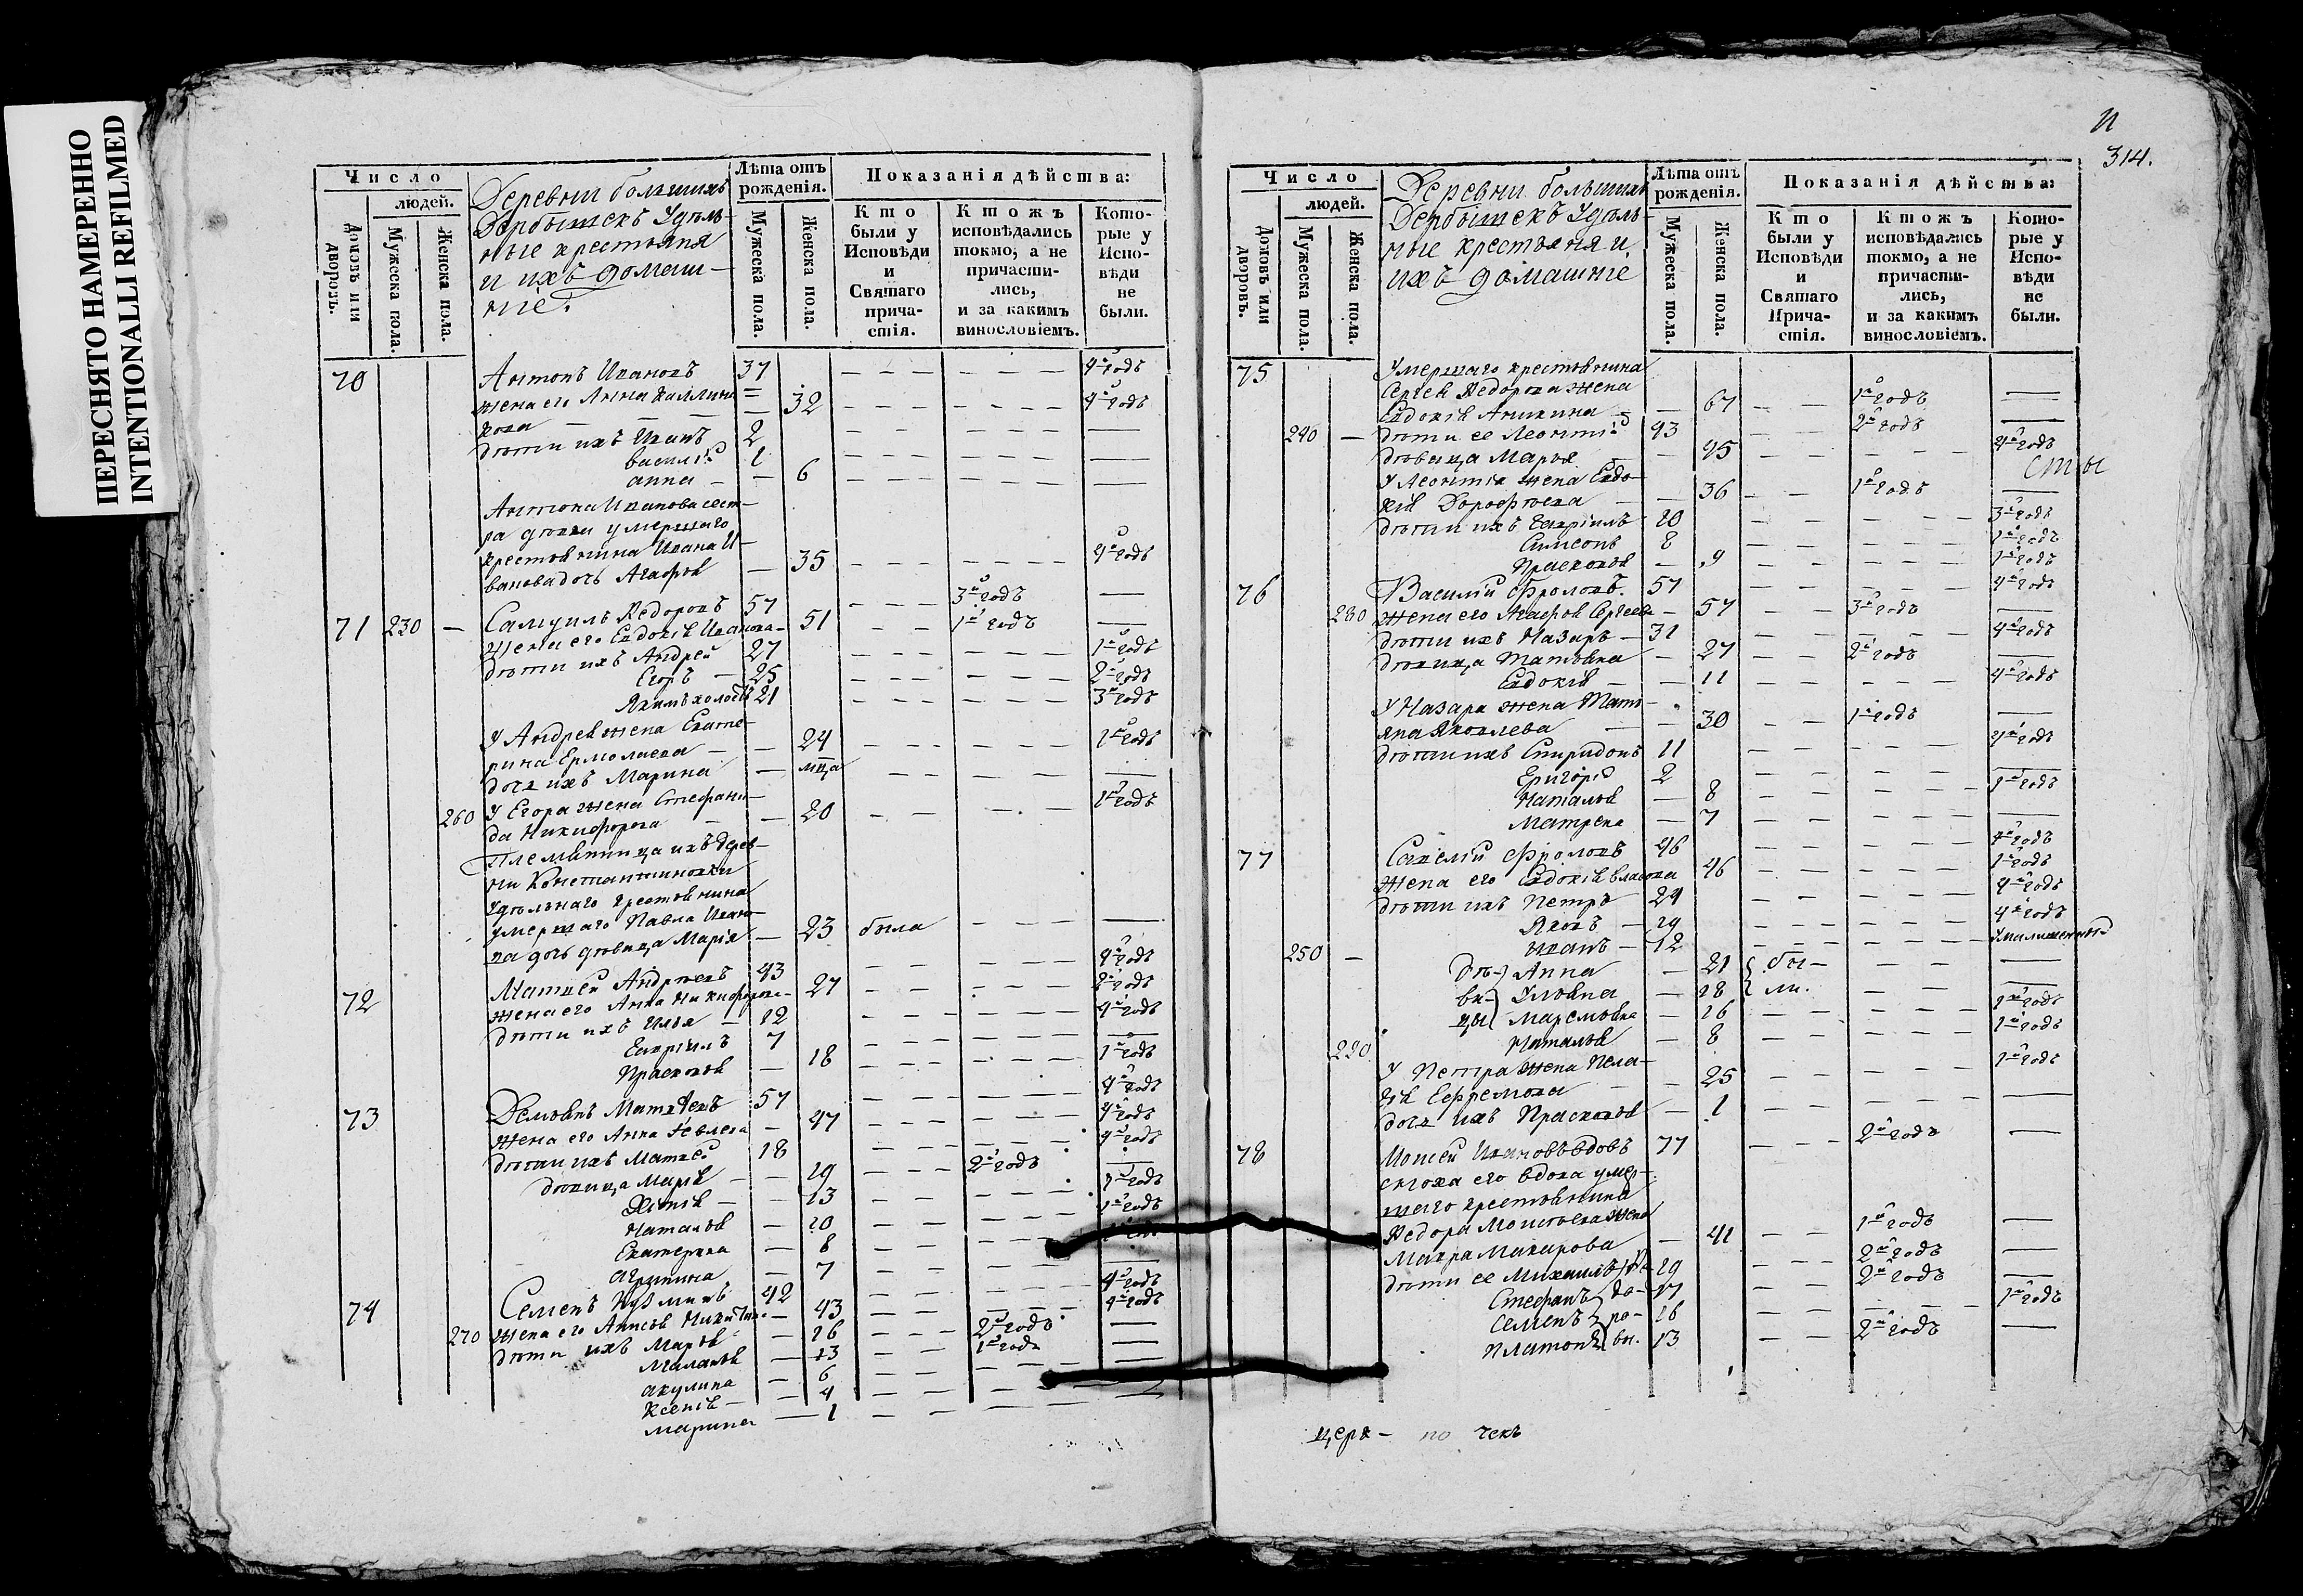 ПЕРЕСНЯТО НАМЕРЕННО
INTENTIONALLI REFILMED
Число
людей.
Домовъ или дворовъ.
Мужеска пола.
Женска пола.
Деревни большихъ
Дербышекъ Удѣль-
ные крестьяня
и ихъ домаш-
ніе.
Лѣта отъ рожденія.
Мужеска пола.
Женска пола.
Показанія дѣйства:
Кто были у Исповѣди и Святаго причастія.
Ктожъ исповѣдались токмо, а не причастились, и за какимъ винословіемъ.
Которые у Исповѣди не были.
70 Антонъ Ивановъ 37 — — — — — — 4й годъ
жена его Анна
— 32 — — — — — — 4й годъ
дѣти ихъ Иванъ 2 — — — — — — —
василій 1 — — — — — — —
анна — — 6 — — — — — — —
Антона Иванова сест-
ра дѣвка умершаго
крестьянина Ивана И-
ванова дочь Агафья — 35 — — — — — — 4й годъ
71 230 — Самуилъ Ѳедоровъ 57 — — — 3й годъ —
жена его Евдокія Иванова — 51 — — 1й годъ —
дѣти ихъ Андрей 27 — — — — — — 1й годъ
Егоръ — 25 — — — — — — 2й годъ
Якимъ холостъ 21 — — — — — — 3й годъ
У Андрея жена Екате-
рина Ермолаева — — 24 — — — — — — 1й годъ
дочь ихъ Марина — мца — — — — — — —
260 У Егора жена Стефани-
да Никифорова — — 20 — — — — — 1й годъ
Племянница ихъ дерев-
ни Константиновки
Удѣльнаго крестьянина
умершаго Павла Ивано-
ва дочь дѣвица Марія — 23 была — — —
72 Матвей Андреевъ 43 — — — — — 4й годъ
жена его Анна Никифорова — 27 — — — — — 2й годъ
дѣти ихъ Илья — 12 — — — — — — 4й годъ
Гавріилъ 7 — — — — — — —
Прасковья — 18 — — — — — — 1й годъ
73 Демьянъ Матвѣевъ 57 — — — — — — 4й годъ
жена его Анна — 47 — — — — — — 4й годъ
дѣти ихъ Матвей 18 — — — — — — 4й годъ
дѣвица Марья — — 19 — — — 2й годъ —
— — 13 — — — — — 1й годъ
Наталья — 10 — — — — — — 1й годъ
Екатерина — 8 — — — —
агрипина — 7 — — — — — —
74 Семенъ Кузминъ 42 — — — — — 4й годъ
270 жена его Анисья Никитина — 43 — — — — — — 4й годъ
дѣти ихъ Марья — 16 — — — 2й годъ —
Маланья — 13 — — — 1й годъ —
акулина — 6 — — — — — —
Ксенія — — 4 — — — — — —
марина — 1 — — — — — —
И
314.
Число
людей.
Домовъ или дворовъ.
Мужеска пола.
Женска пола.
Деревни большихъ
Дербышекъ Удѣль-
ные крестьяня и
ихъ домашніе
Лѣта отъ рожденія.
Мужеска пола.
Женска пола.
Показанія дѣйства:
Кто были у Исповѣди и Святаго Причастія.
Ктожъ исповѣдались токмо, а не причастились, и за какимъ винословіемъ.
Которые у Исповѣди не были.
75 Умершаго крестьянина
Сергея Ѳедорова жена
Евдокія Аникина — 67 — — 1й годъ —
240 — дѣти ее Леонтій 43 — — 2й годъ —
дѣвица Марья — 45 — — — — — 4й годъ
У Леонтія жена Евдо-
кія Дорофеева — — 36 — — 1й годъ —
дѣти ихъ Гавріилъ 10 — — — — — 3й годъ
Симеонъ 8 — — — — — 1й годъ
Прасковья — 9 — — — — — 1й годъ
76 Василій Фроловъ. 57 — — — — — 4й годъ
280 жена его Агафья Сергеева — 57 — — 3й годъ —
дѣти ихъ Назаръ — 31 — — — — — 4й годъ
дѣвица Татьяна — 27 — — 2й годъ —
Евдокія — — 11 — — — — — 4й годъ
У Назара жена Тать-
яна Яковлева — — 30 — — 1й годъ —
дѣти ихъ Спиридонъ 11 — — — — — 4й годъ
Григорій 2 — — — — — —
Наталья — 8 — — — — — 1й годъ
Матрена — 7 — — — — — —
77 Савелій Фроловъ 46 — — — — — 4й годъ
жена его Евдокія власова 46 — — — — — 1й годъ
дѣти ихъ Петръ — 24 — — — — — 4й годъ
Яковъ — 19 — — — — — 4й годъ
250 — иванъ — 12 — — — — — Умалишенный
дѣ- Анна — 21 бы- — — —
ви- Ульяна — 18 ли. — — —
цы Маремьяна — 16 — — — — — 1й годъ
290 Наталья — 8 — — — — — 1й годъ
У Петра жена Пела-
гія Ефремова — — 25 — — — — — 1й годъ
дочь ихъ Прасковья — 1 — — — — — —
78 Моисей Ивановъ вдовъ 77 — — — 2й годъ —
сноха его вдова умер-
шаго крестьянина
Ѳедора Моисѣева жена
Мавра Макарова — 41 — — 1й годъ —
дѣти ее Михаилъ 19 — — — 2й годъ —
Стефанъ 17 — — — 2й годъ —
Семенъ 16 — — — — — 1й годъ
Платонъ 13 — — 2й годъ —
церк- по чекъ